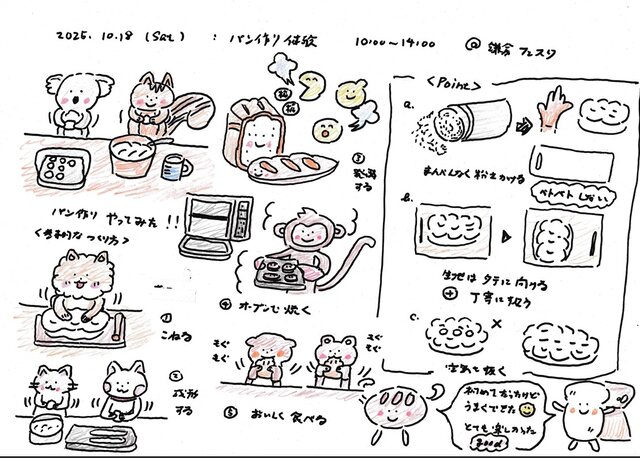 2025. 10.18 (Sat) : パン作り体験 10:00〜14:00 @ 鎌倉 フェスタ
パン作り やってみた !!
<基本的な つくり方>
① こねる
② 成形する
③ 発酵する
④ オーブンで 焼く
もぐもぐ
もぐもぐ
⑤ おいしく 食べる
<Point>
a.
まんべんなく 粉をかける
ベトベト しない
b.
生地は タテに 向ける
⊕ 丁寧に扱う
c.
×
空気を 抜く
初めて だったけど
うまくできた
とても 楽しかった
good